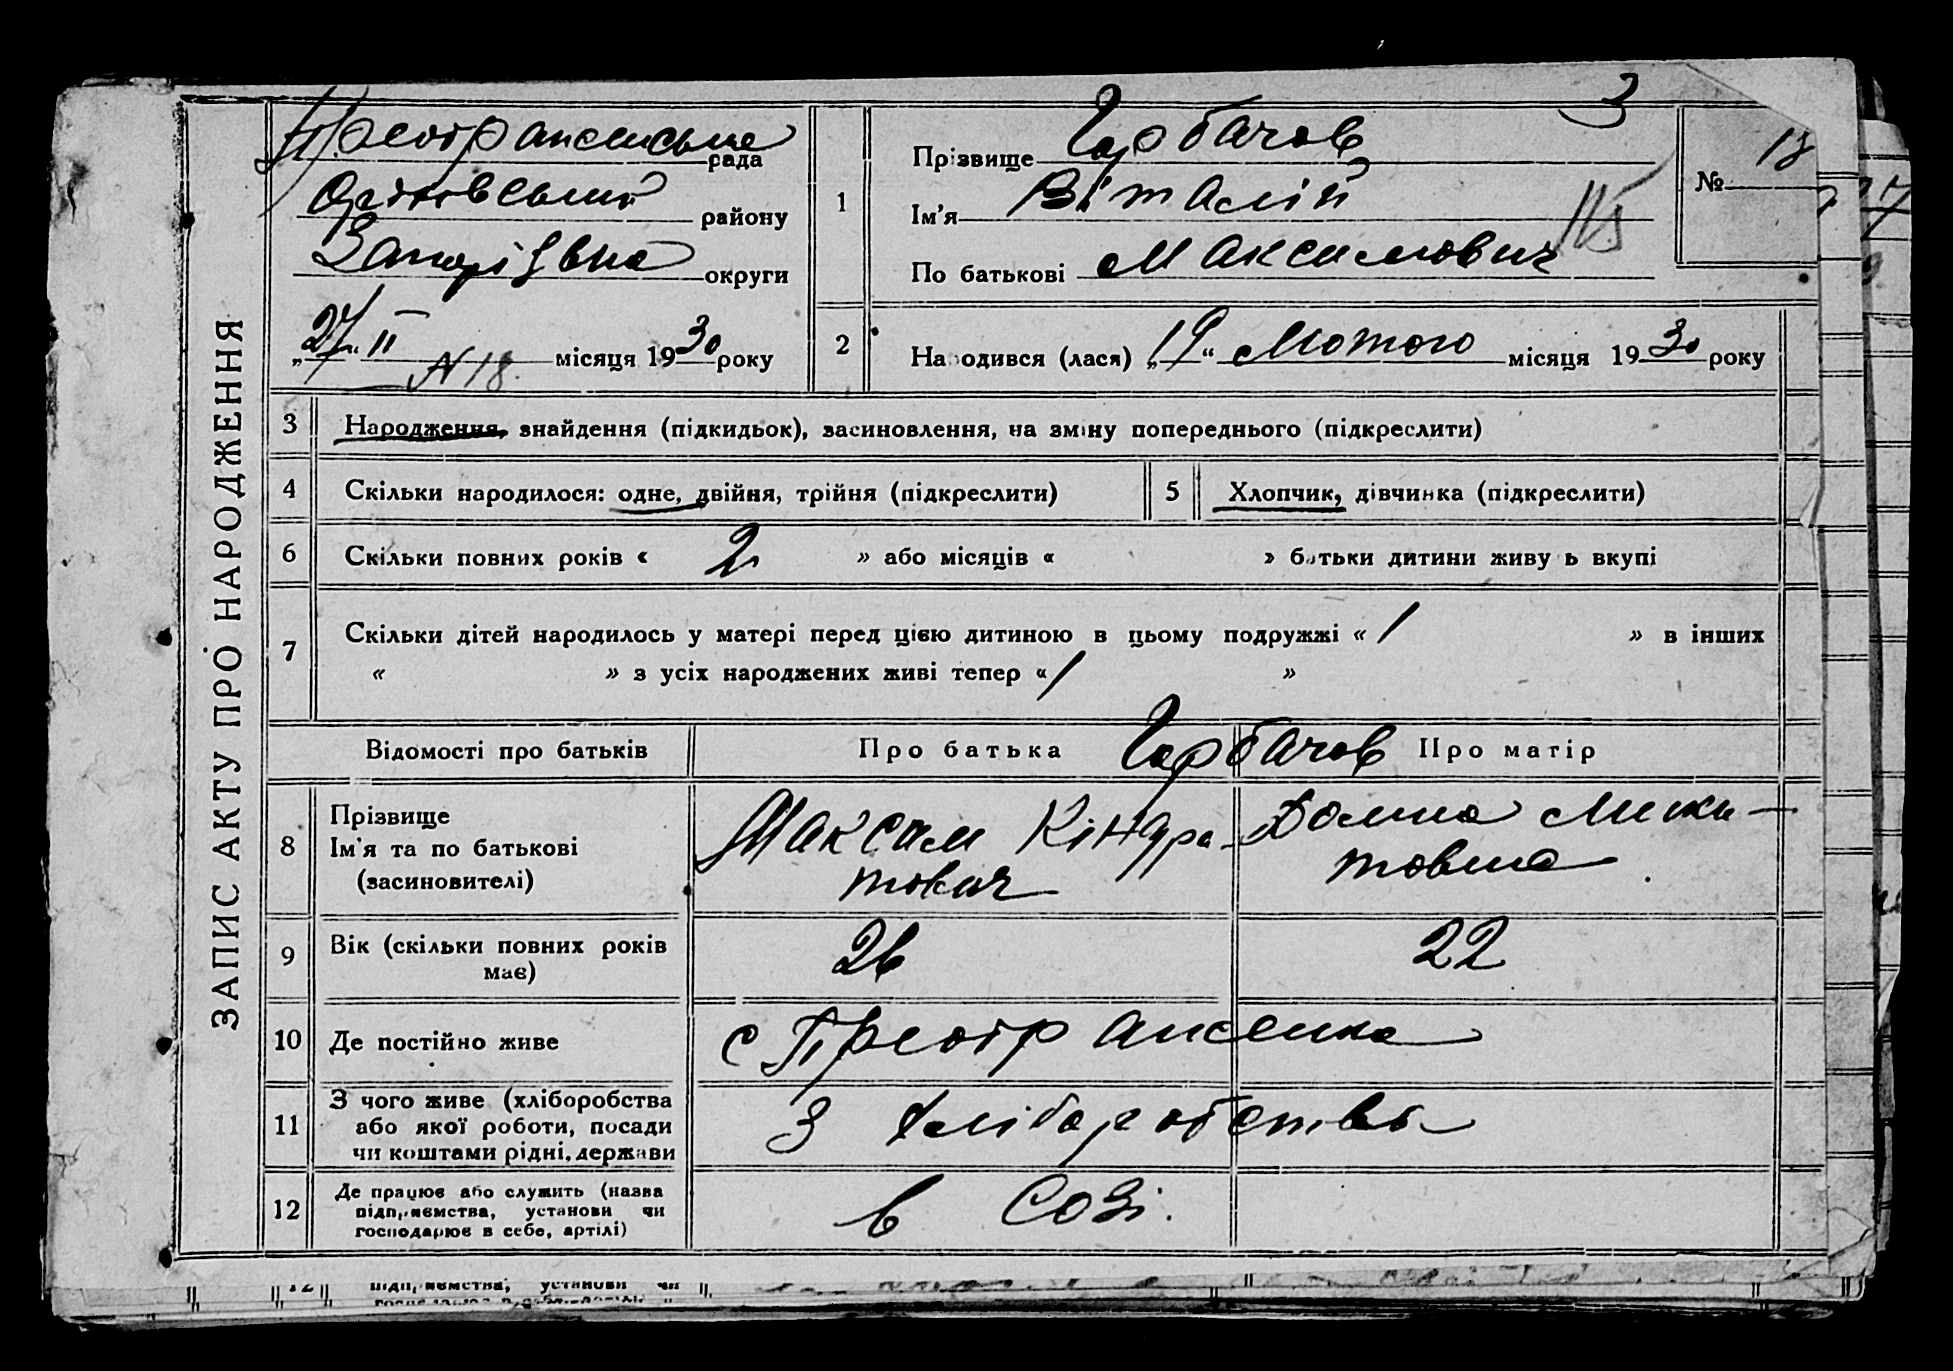 ЗАПИС АКТУ ПРО НАРОДЖЕННЯ
3
Преображенська рада
Оріхівський району
Запоріжська округи
„27“ II місяця 1930 року
N 18.
1
Прізвище Горбачов
Ім'я Віталій
По батькові Максимович
№ 18
2
Народився (лася) „19“ Лютого місяця 1930 року
3 Народження, знайдення (підкидьок), засиновлення, на зміну попереднього (підкреслити)
4 Скільки народилося: одне, двійня, трійня (підкреслити) 5 Хлопчик, дівчинка (підкреслити)
6 Скільки повних років « 2 » або місяців « » батьки дитини живуть вкупі
7 Скільки дітей народилось у матері перед цією дитиною в цьому подружжі « 1 » в інших
« » з усіх народжених живі тепер « 1 »
Відомості про батьків Про батька Горбачов Про матір
8 Прізвище
Ім'я та по батькові
(засиновителі)
Максим Кіндра-
тович
Домна Мики-
товна
9 Вік (скільки повних років
має)
26 22
10 Де постійно живе с Преображенка
11 З чого живе (хліборобства
або якої роботи, посади
чи коштами рідні, держави
З хліборобства
12 Де працює або служить (назва
підприємства, установи чи
господарює в себе, артілі)
в Созі.
12 підприємства, установи чи